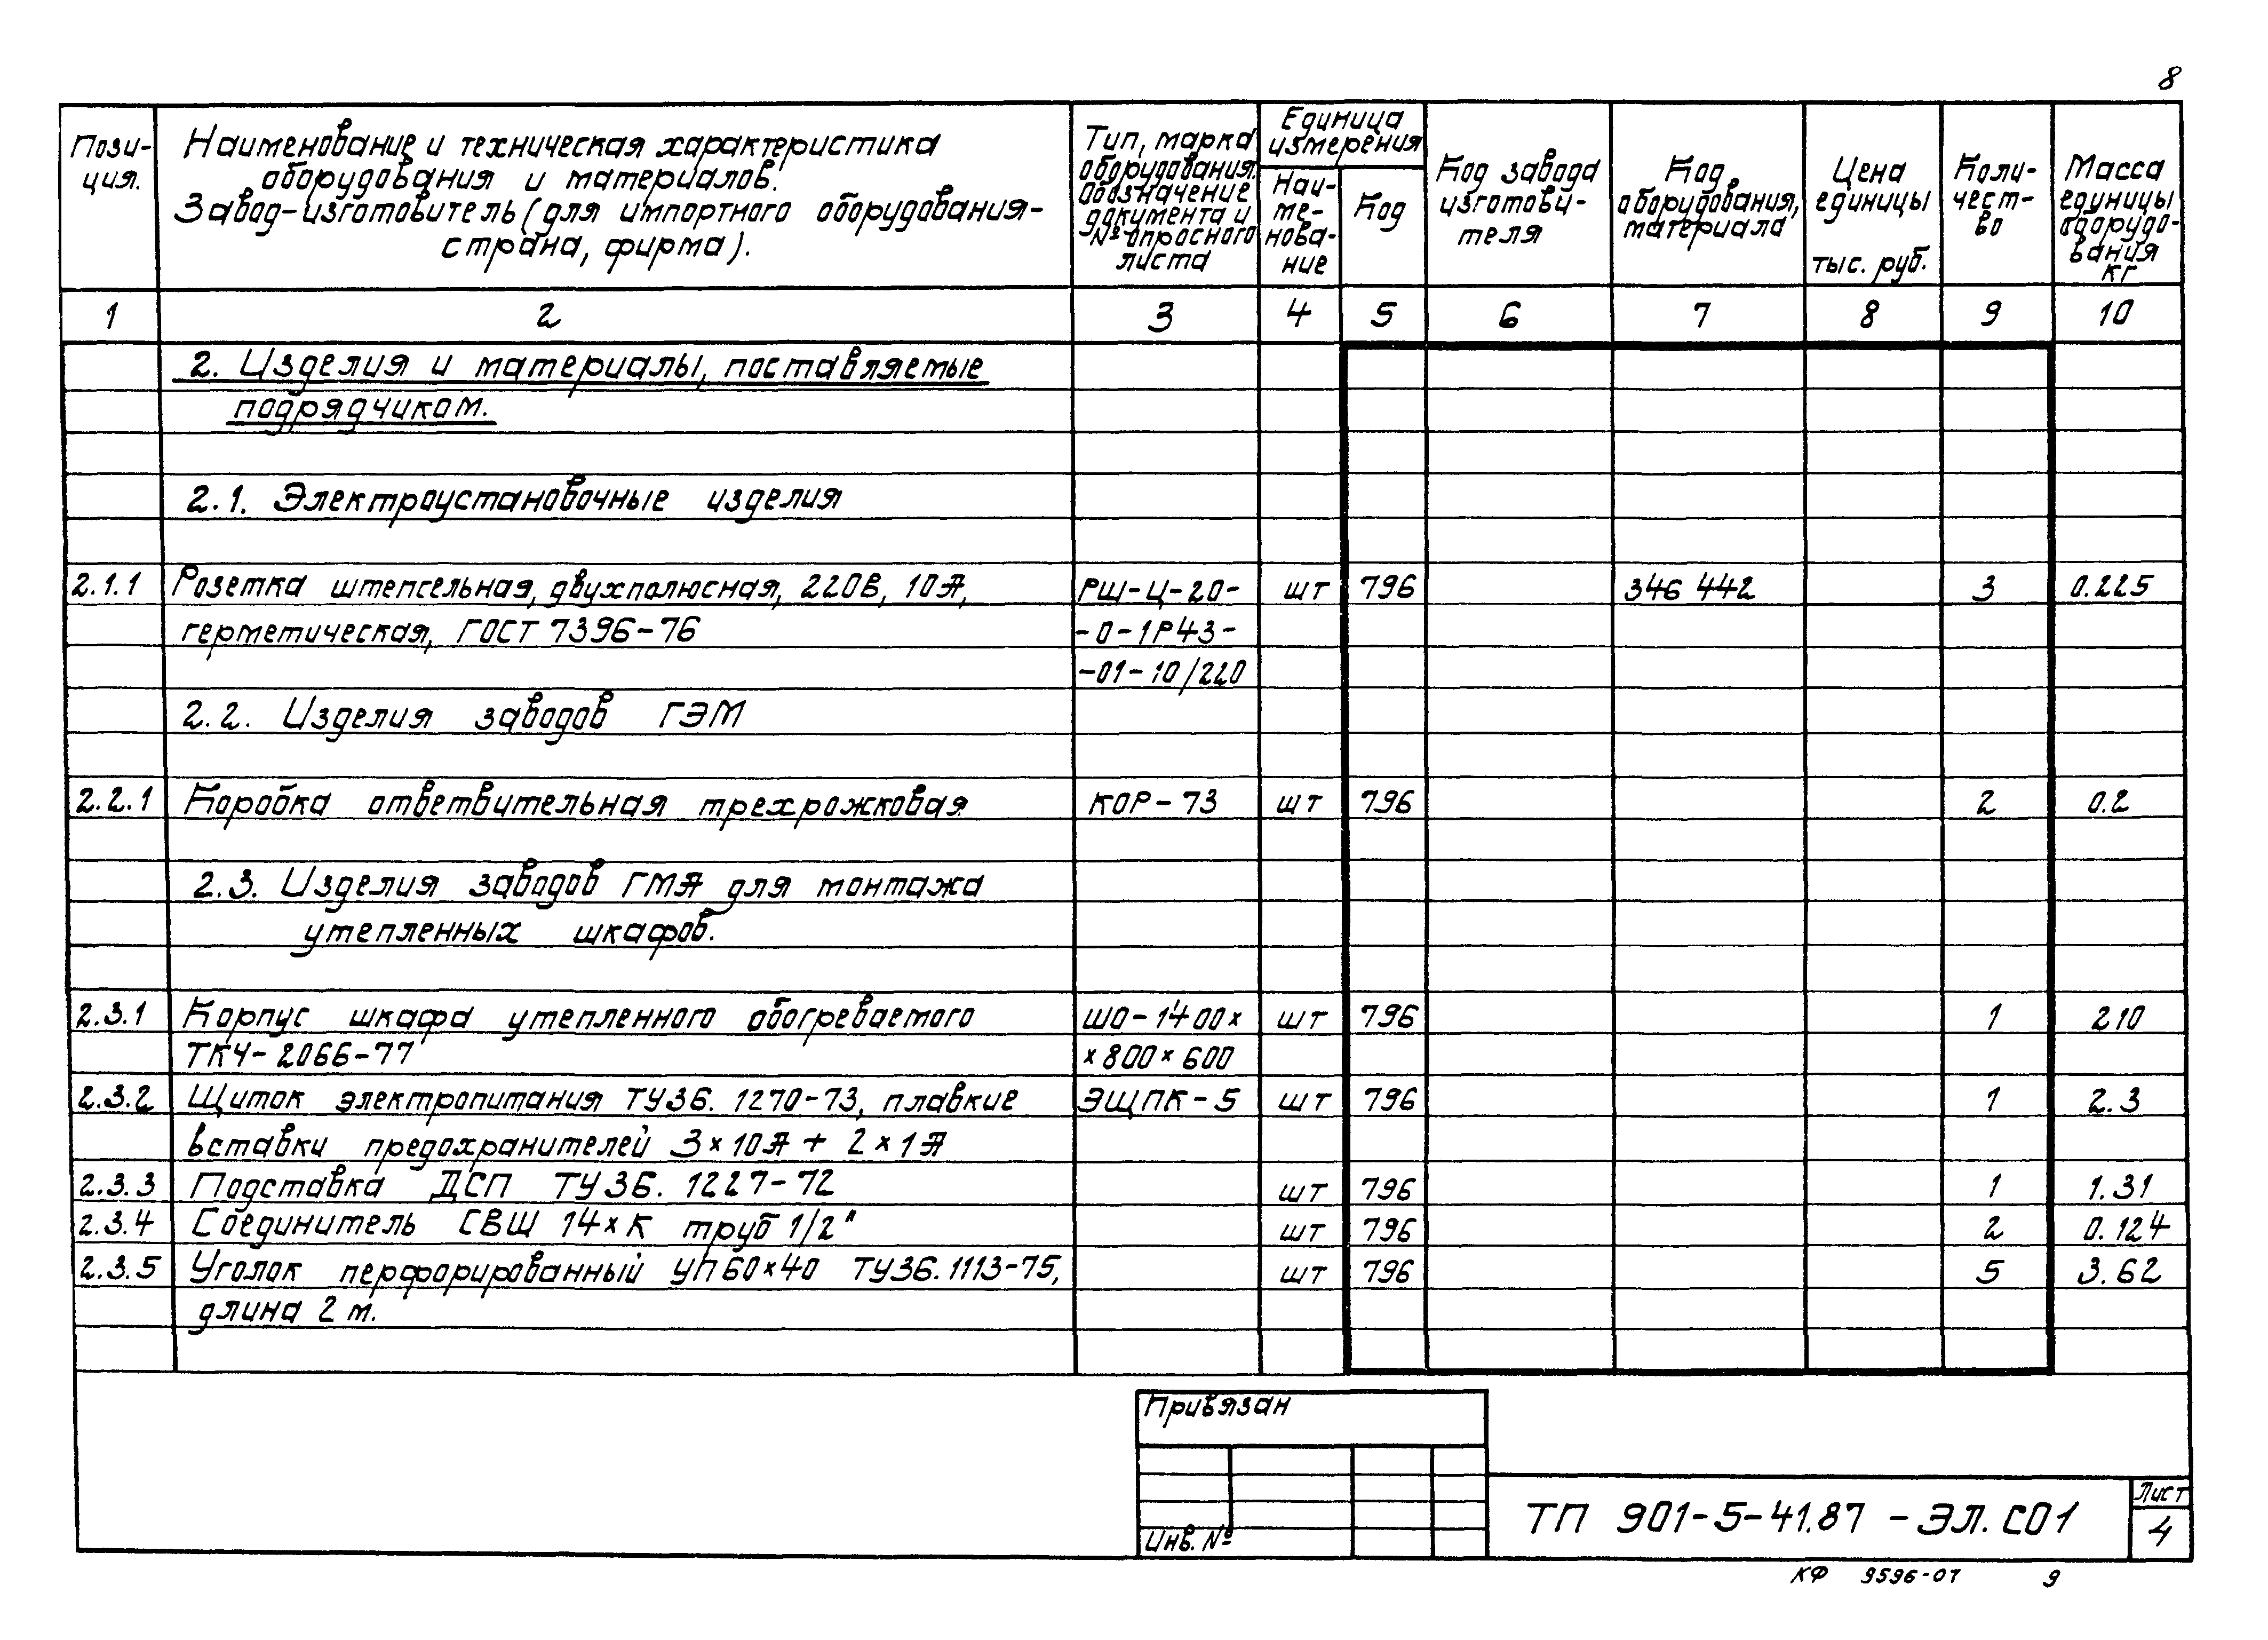 8
Пози-
ция.
Наименование и техническая характеристика
оборудования и материалов.
Завод-изготовитель (для импортного оборудования-
страна, фирма).
Тип, марка
оборудования.
Обозначение
документа и
№ опросного
листа
Единица
измерения
Наи-
ме-
нова-
ние
Код
Код завода
изготови-
теля
Код
оборудования,
материала
Цена
единицы
тыс. руб.
Коли-
чест-
во
Масса
единицы
оборудо-
вания
кг
1 2 3 4 5 6 7 8 9 10
2. Изделия и материалы, поставляемые
подрядчиком.
2.1. Электроустановочные изделия
2.1.1 Розетка штепсельная, двухполюсная, 220В, 10А, РШ-Ц-20- шт 796 346 442 3 0.225
герметическая, ГОСТ 7396-76 -0-1Р43-
-01-10/220
2.2. Изделия заводов ГЭМ
2.2.1 Коробка ответвительная трехрожковая КОР-73 шт 796 2 0.2
2.3. Изделия заводов ГМА для монтажа
утепленных шкафов.
2.3.1 Корпус шкафа утепленного обогреваемого ШО-1400× шт 796 1 210
ТКЧ-2066-77 ×800×600
2.3.2 Щиток электропитания ТУ36. 1270-73, плавкие ЭЩПК-5 шт 796 1 2.3
вставки предохранителей 3×10А + 2×1А
2.3.3 Подставка ДСП ТУ36. 1227-72 шт 796 1 1.31
2.3.4 Соединитель СВШ 14×К труб 1/2" шт 796 2 0.124
2.3.5 Уголок перфорированный УП60×40 ТУ36.1113-75, шт 796 5 3.62
длина 2 м.
Привязан
Инв. №
ТП 901-5-41.87 - ЭЛ. СО1
Лист
4
КФ 9596-07 9